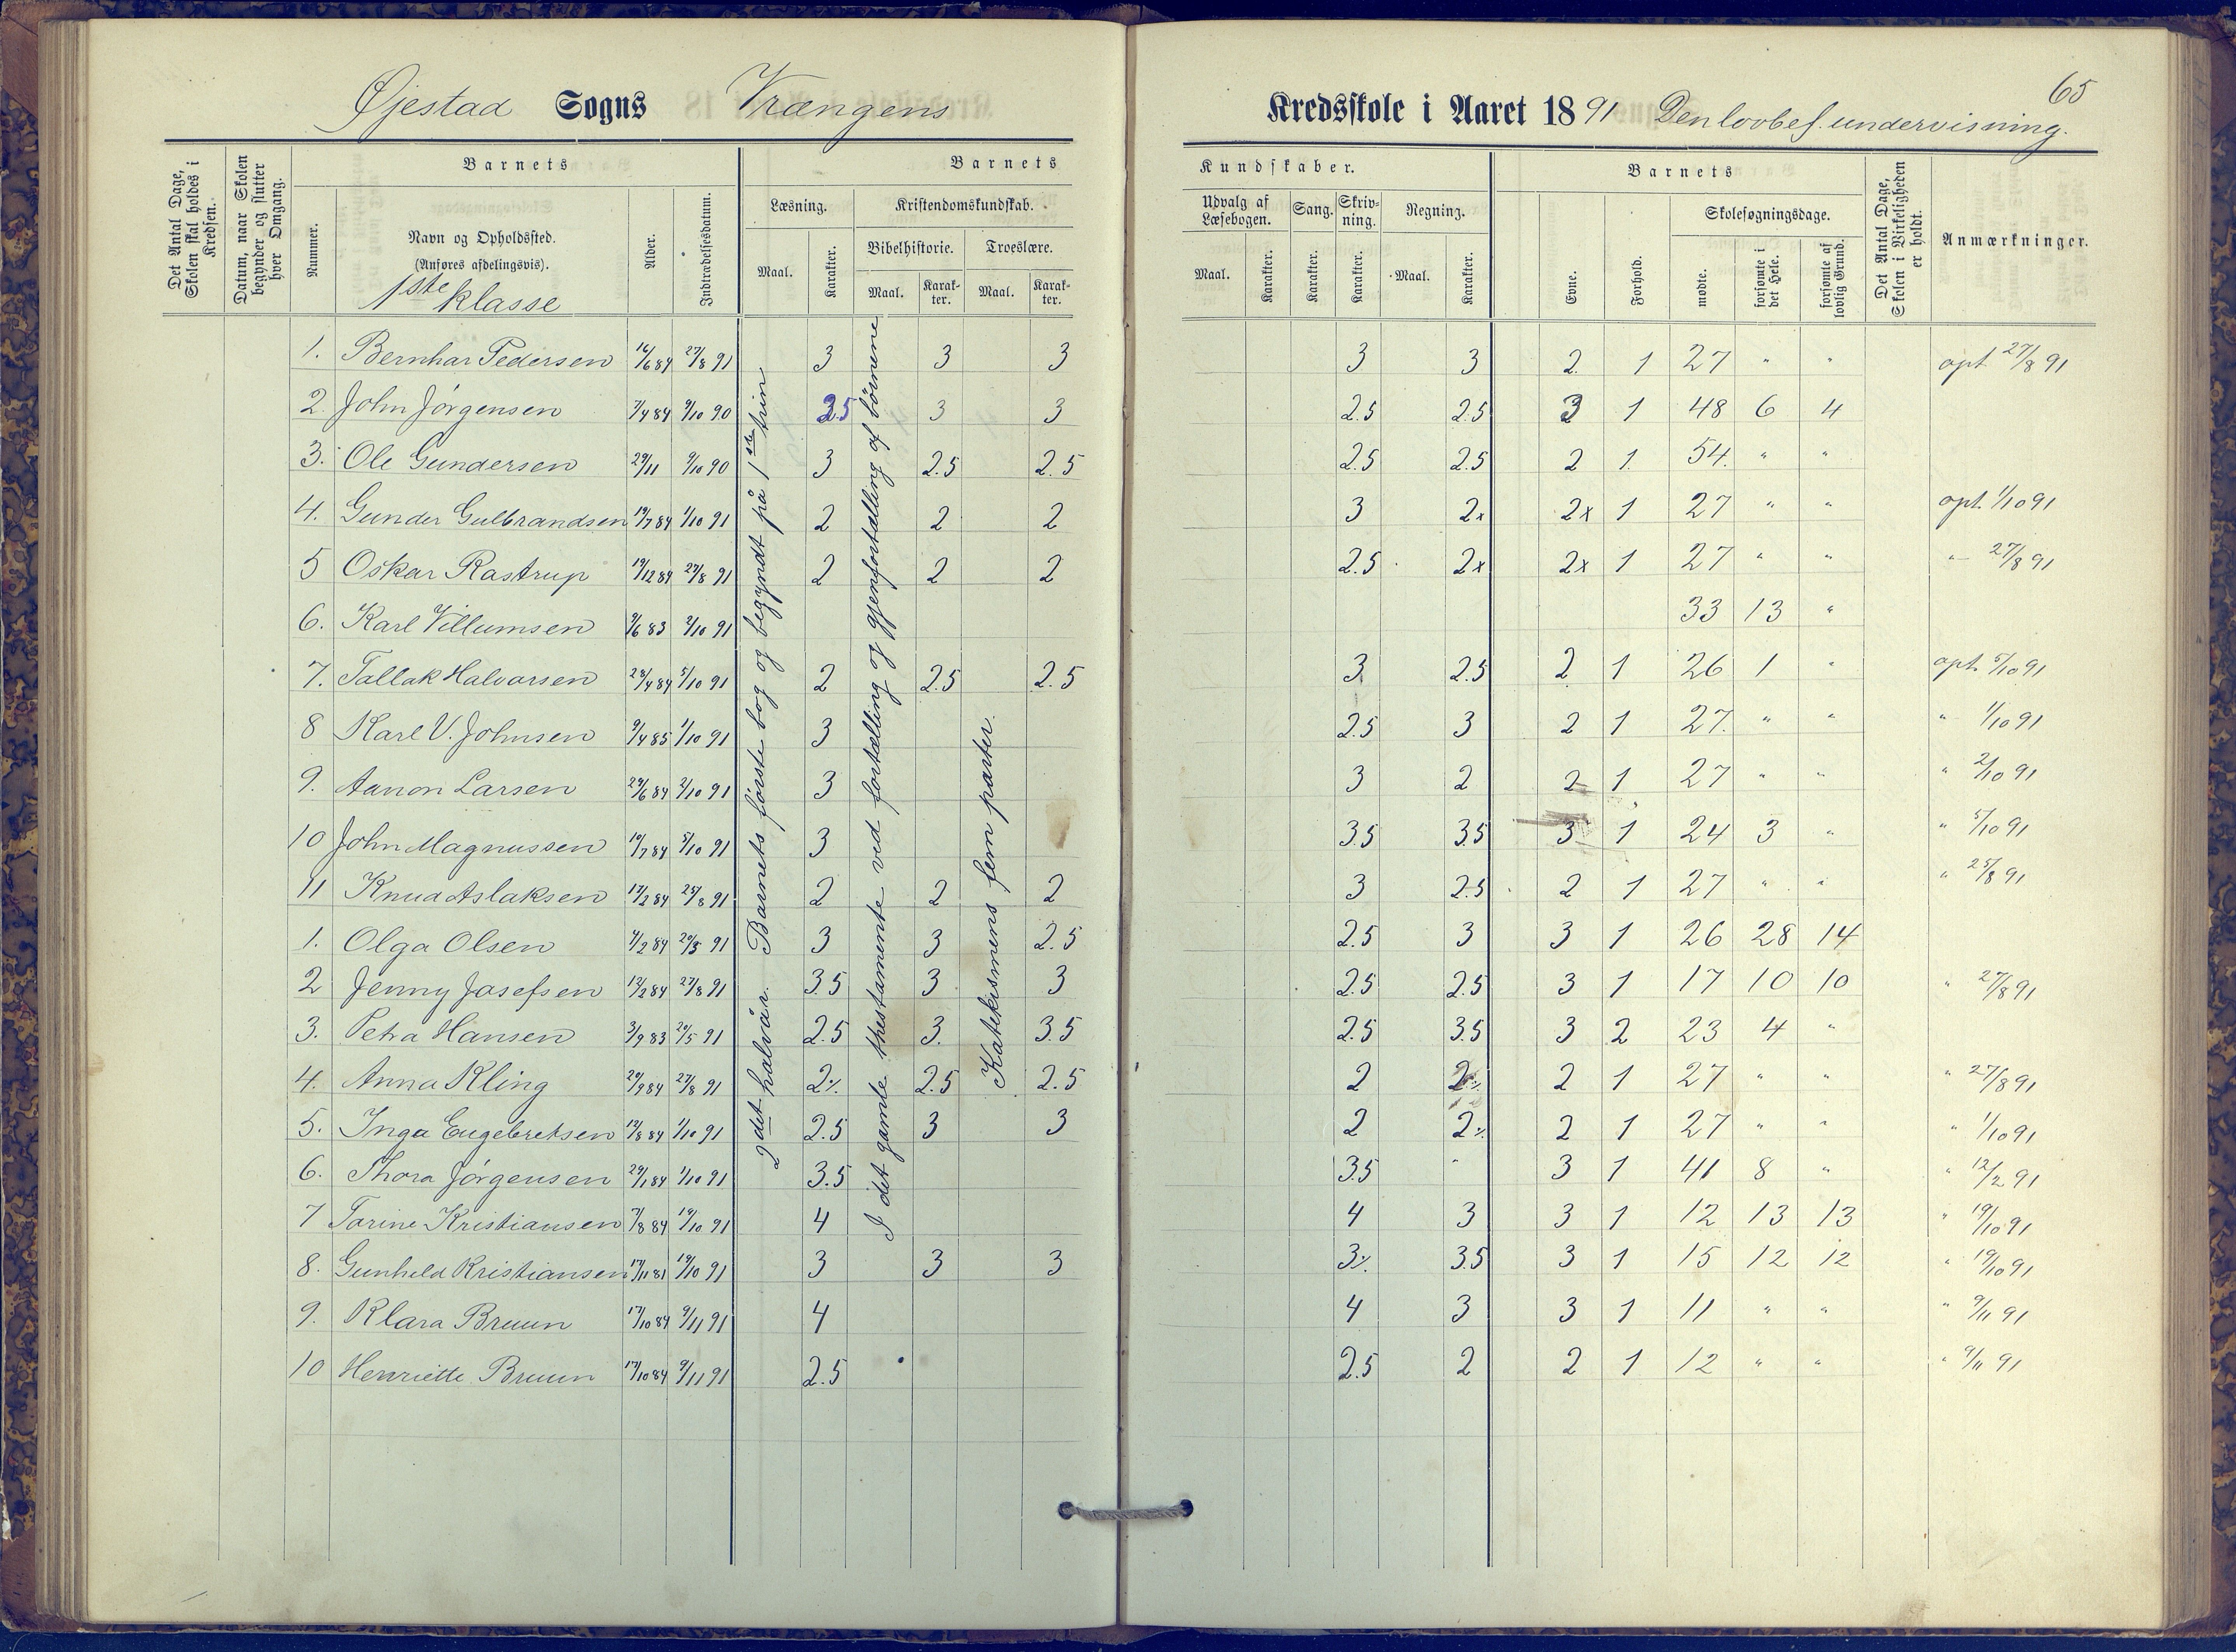 65
Øjestad Sogns Vrængens Kredsskole i Aaret 1891 Den lovbef. undervisning.
Det Antal Dage, Skolen skal holdes i Kredsen.
Datum, naar Skolen begynder og slutter hver Omgang.
Barnets
Nummer.
Navn og Opholdssted.
(Anføres afdelingsvis).
1ste klasse
Alder.
Indtrædelsesdatum.
Barnets Kundskaber.
Læsning.
Maal.
Karakter.
Kristendomskundskab.
Bibelhistorie.
Maal.
Karakter.
Troeslære.
Maal.
Karakter.
Udvalg af Læsebogen.
Maal.
Karakter.
Sang.
Karakter.
Skrivning.
Karakter.
Regning.
Maal.
Karakter.
Barnets
Evne.
Forhold.
Skolesøgningsdage.
mødte.
forsømte i det Hele.
forsømte af lovlig Grund.
Det Antal Dage, Skolen i Virkeligheden er holdt.
Anmærkninger.
2det halvår. Barnets første bog og begyndt på 1ste trin
I det gamle thestamente ved fortælling og gjenfortælling af børnene
Katekismens fem parter.
1. Bernhar Pedersen 16/6 84 27/8 91 3 3 3 3 3 2 1 27 " " opt 27/8 91
2 John Jörgensen 7/4 84 9/10 90 2.5 3 3 2.5 2.5 3 1 48 6 4
3. Ole Gundersen 29/11 9/10 90 3 2.5 2.5 2.5 2.5 2 1 54 " "
4. Gunder Gulbrandsen 19/7 84 1/10 91 2 2 2 3 2x 2x 1 27 " " opt. 1/10 91
5 Oskar Rastrup 19/12 84 27/8 91 2 2 2 2.5 2x 2x 1 27 " " " 27/8 91
6. Karl Villumsen 9/6 83 2/10 91 33 13 "
7. Tallak Halvorsen 28/4 84 5/10 91 2 2.5 2.5 3 2.5 2 1 26 1 " opt. 5/10 91
8 Karl V. Johnsen 9/4 85 1/10 91 3 2.5 3 2 1 27. " " " 1/10 91
9. Aanon Larsen 29/6 84 2/10 91 3 3 2 2 1 27 " " " 2/10 91
10 John Magnussen 10/7 84 5/10 91 3 3.5 3.5 3 1 24 3 " " 5/10 91
11 Knud Aslaksen 17/2 84 25/8 91 2 2 2 3 2.5 2 1 27 " " " 25/8 91
1. Olga Olsen 4/2 84 20/5 91 3 3 2.5 2.5 3 3 1 26 28 14
2 Jenny Josefsen 12/2 84 27/8 91 3.5 3 3 2.5 2.5 3 1 17 10 10 " 27/8 91
3. Petra Hansen 3/9 83 20/5 91 2.5 3. 3.5 2.5 3.5 3 2 23 4 "
4. Anna Kling 20/9 84 27/8 91 2% 2.5 2.5 2 2% 2 1 27 " " " 27/8 91
5. Inga Engebretsen 12/8 84 1/10 91 2.5 3 3 2 2% 2 1 27 " " " 1/10 91
6. Thora Jörgensen 29/1 84 1/10 91 3.5 3.5 " 3 1 41 8 " " 12/2 91
7 Torine Kristiansen 7/8 84 19/10 91 4 4 3 3 1 12 13 13 " 19/10 91
8. Gunhild Kristiansen 17/11 81 19/10 91 3 3 3 3% 3.5 3 1 15 12 12 " 19/10 91
9. Klara Bruun 17/10 84 9/11 91 4 4 3 3 1 11 " " " 9/11 91
10 Henriette Bruun 17/10 84 9/11 91 2.5 2.5 2 2 1 12 " " " 9/11 91